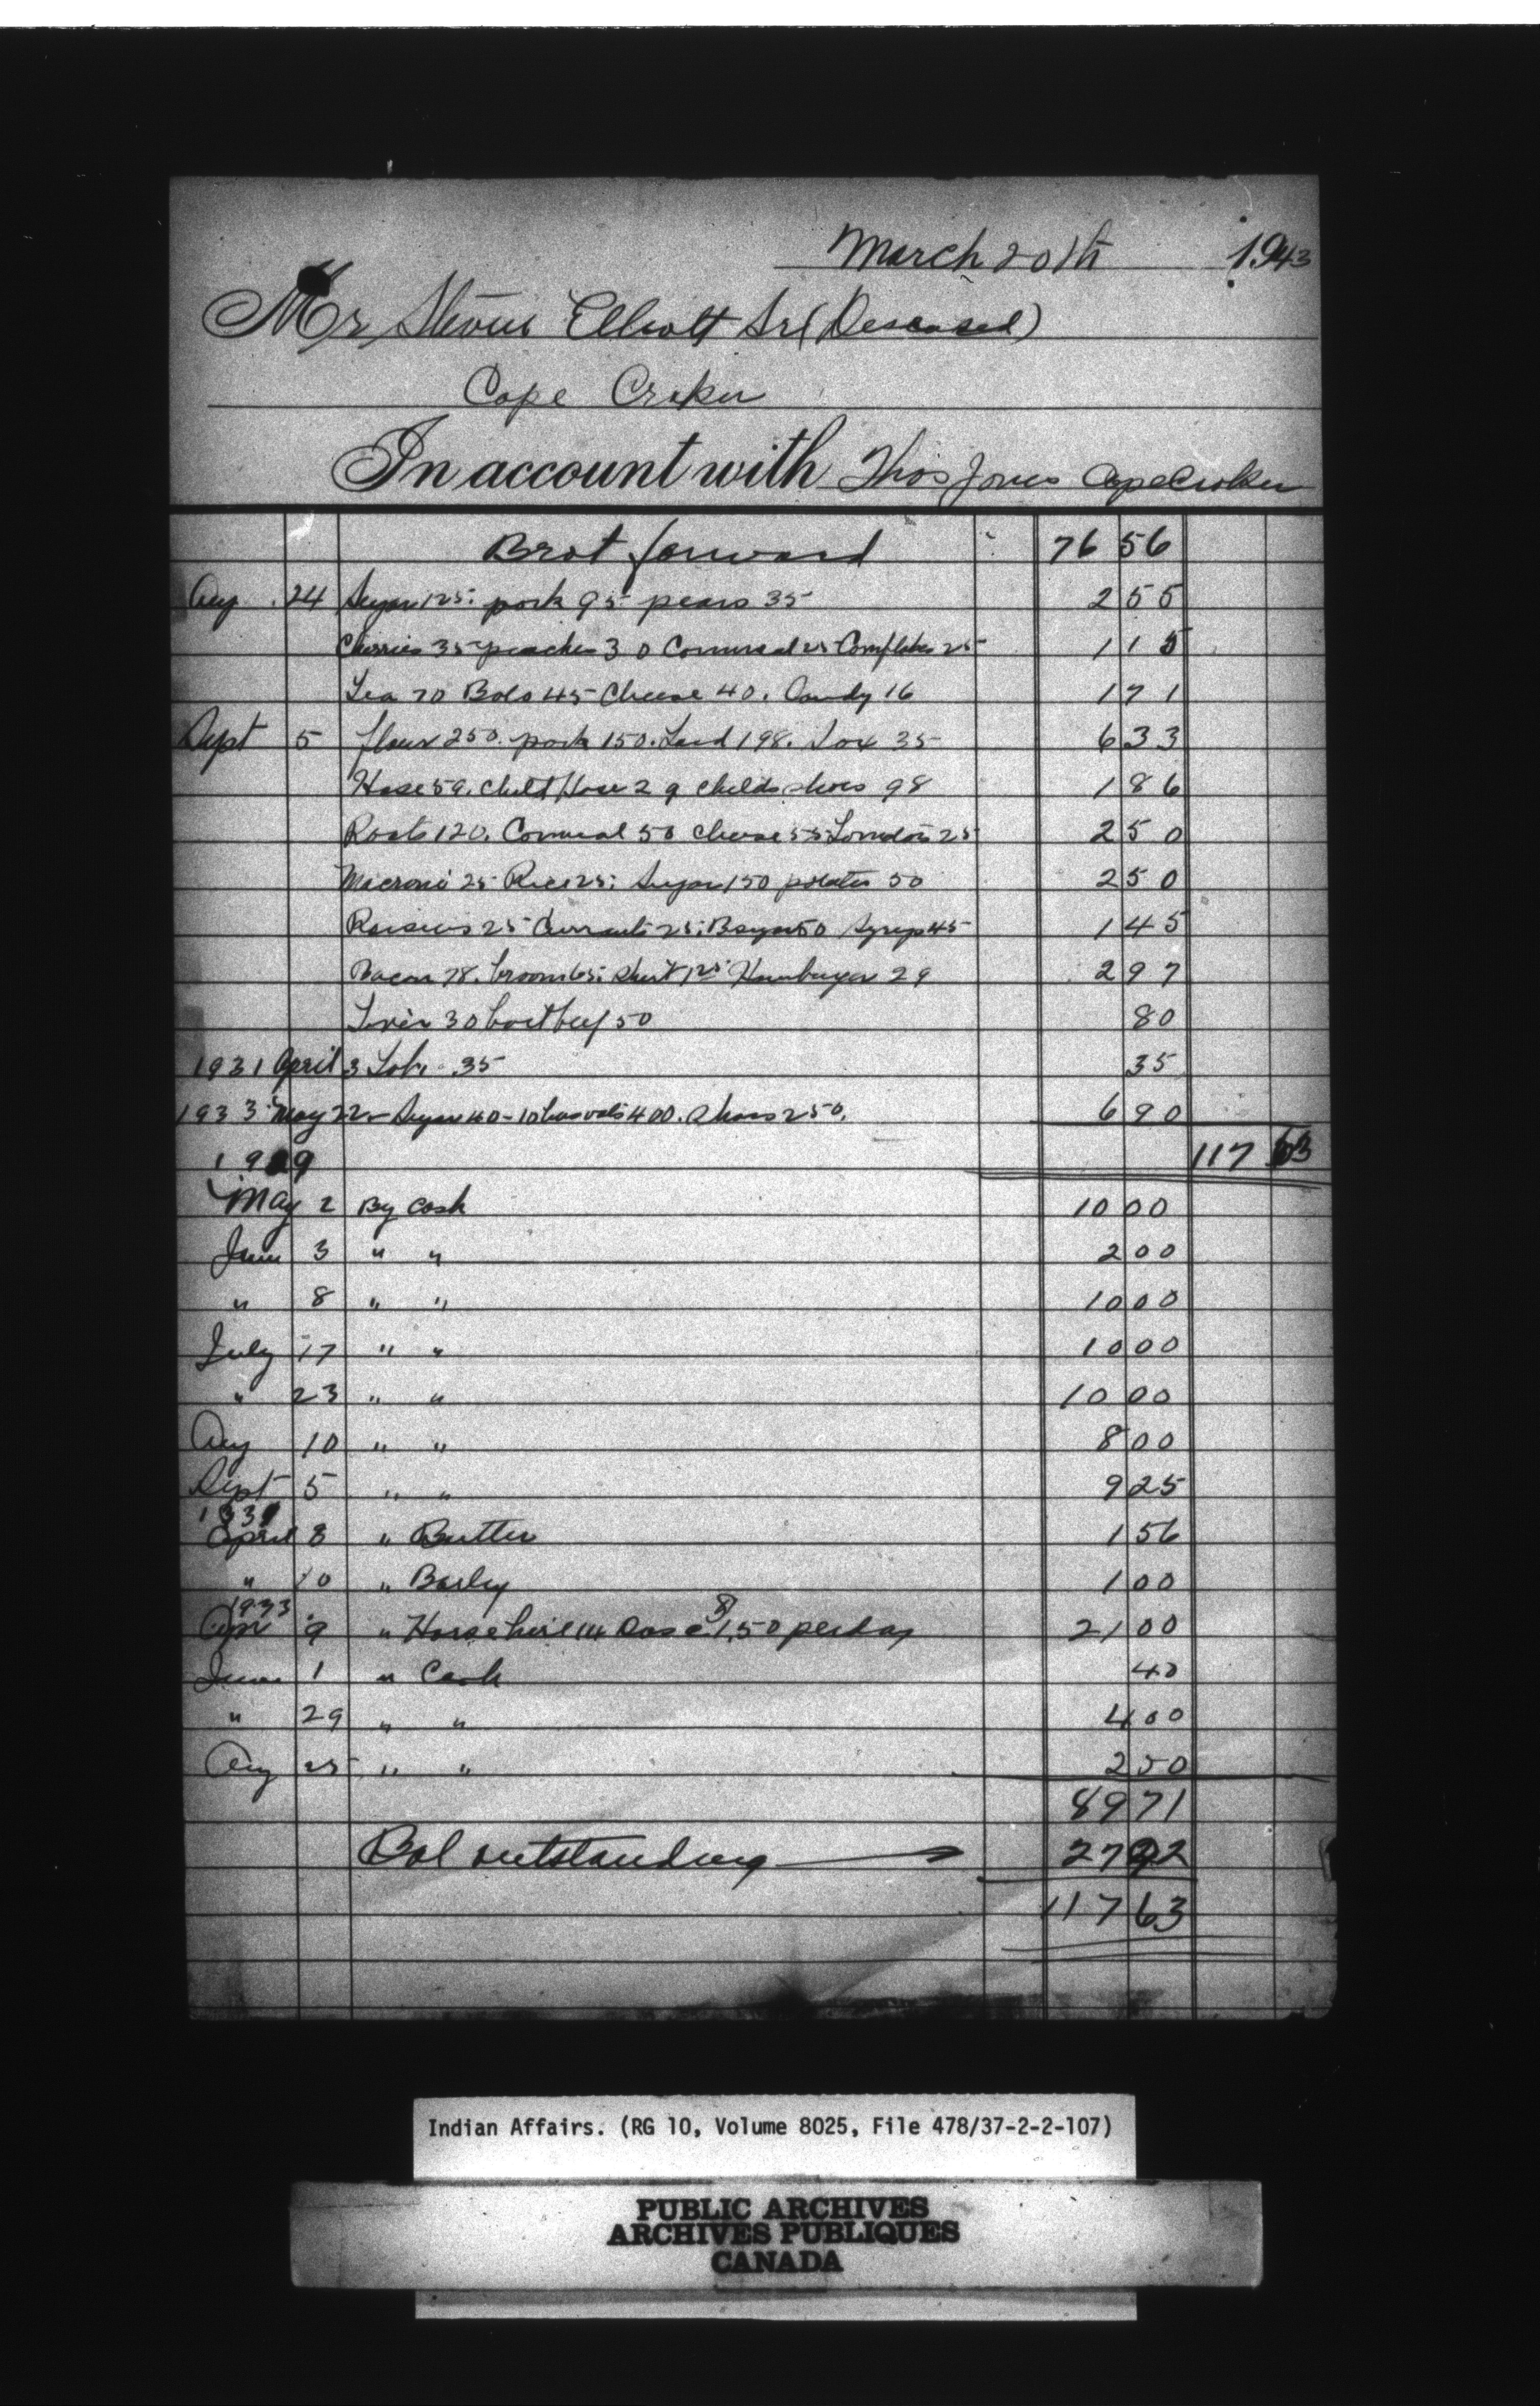 March 20th 1943
Mr Elliott Sr (Deceased)
Cape Croker
In account with Thos Jones Cape Croker
Brot forward 76 56
Aug. 24 Sugar 125. pork 95 pears 35 2 55
Cherries 35 peaches 30 Cornmeal 25 Cornflakes 25 1 15
Tea 70 Bolo 45 Cheese 40. Candy 16 1 71
Sept 5 flour 250. pork 150. Lard 198. Sox 35 6 33
Hose 59. Child Hose 29 childs shoes 98 1 86
Roast 120. Cornmeal 50 cheese 55 25 2 50
Macroni 25 Rice 25. Sugar 150 potatoes 50 2 50
Raisins 25 Currants 25. 50 Syrup 45 1 45
Bacon 78. broom 65. Shirt 125 Hamburger 29 2 97
30 beef 50 80
1931 April 3 35 35
1933 May 22 Sugar 40 - 10 400. Shoes 250. 6 90
117 63
1929
May 2 By Cash 10 00
June 3 " " 2 00
" 8 " " 10 00
July 17 " " 10 00
" 23 " " 10 00
Aug 10 " " 8 00
Sept 5 " " 9 25
1931
April 8 " Butter 1 56
" 10 " Barley 1 00
1933
Apr 9 " Horse hire 14 Das @ $1.50 per day 21 00
June 1 " Cash 40
" 29 " " 4 00
Aug 25 " " 2 50
89 71
Bal outstanding 27 92
117 63
Indian Affairs. (RG 10, Volume 8025, File 478/37-2-2-107)
PUBLIC ARCHIVES
ARCHIVES PUBLIQUES
CANADA